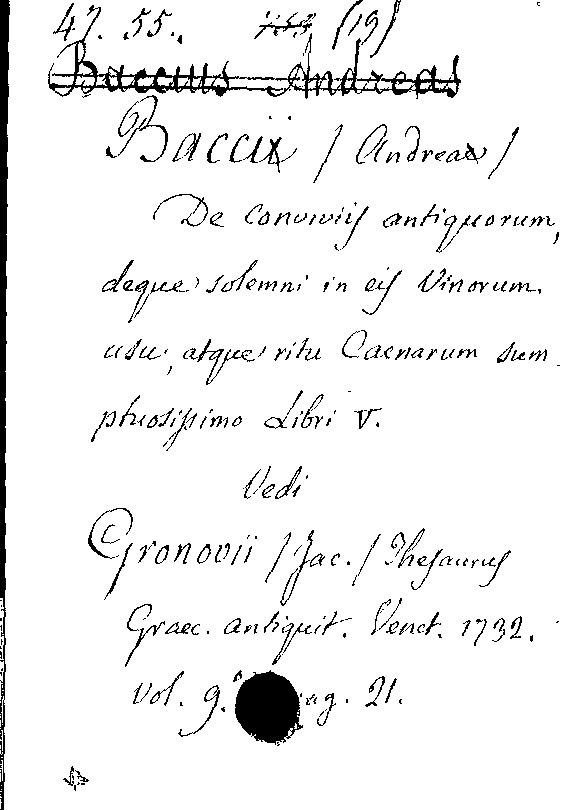 47. 55. (19)
Baccius Andreas
Baccii / Andreae /
De conviviis antiquorum,
deque solemni in eis Vinorum
usu, atque ritu Caenarum sum
ptuosissimo Libri V.
Vedi
Gronovii / Jac. / Thesaurus
Graec. antiquit. Venet. 1732.
vol. 9.° pag. 21.